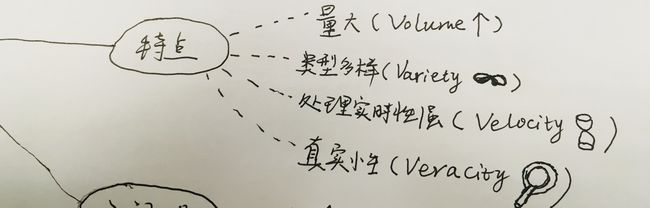 特点
量大(Volume↑)
类型多样(Variety ∞)
处理实时性强(Velocity
真实性(Veracity